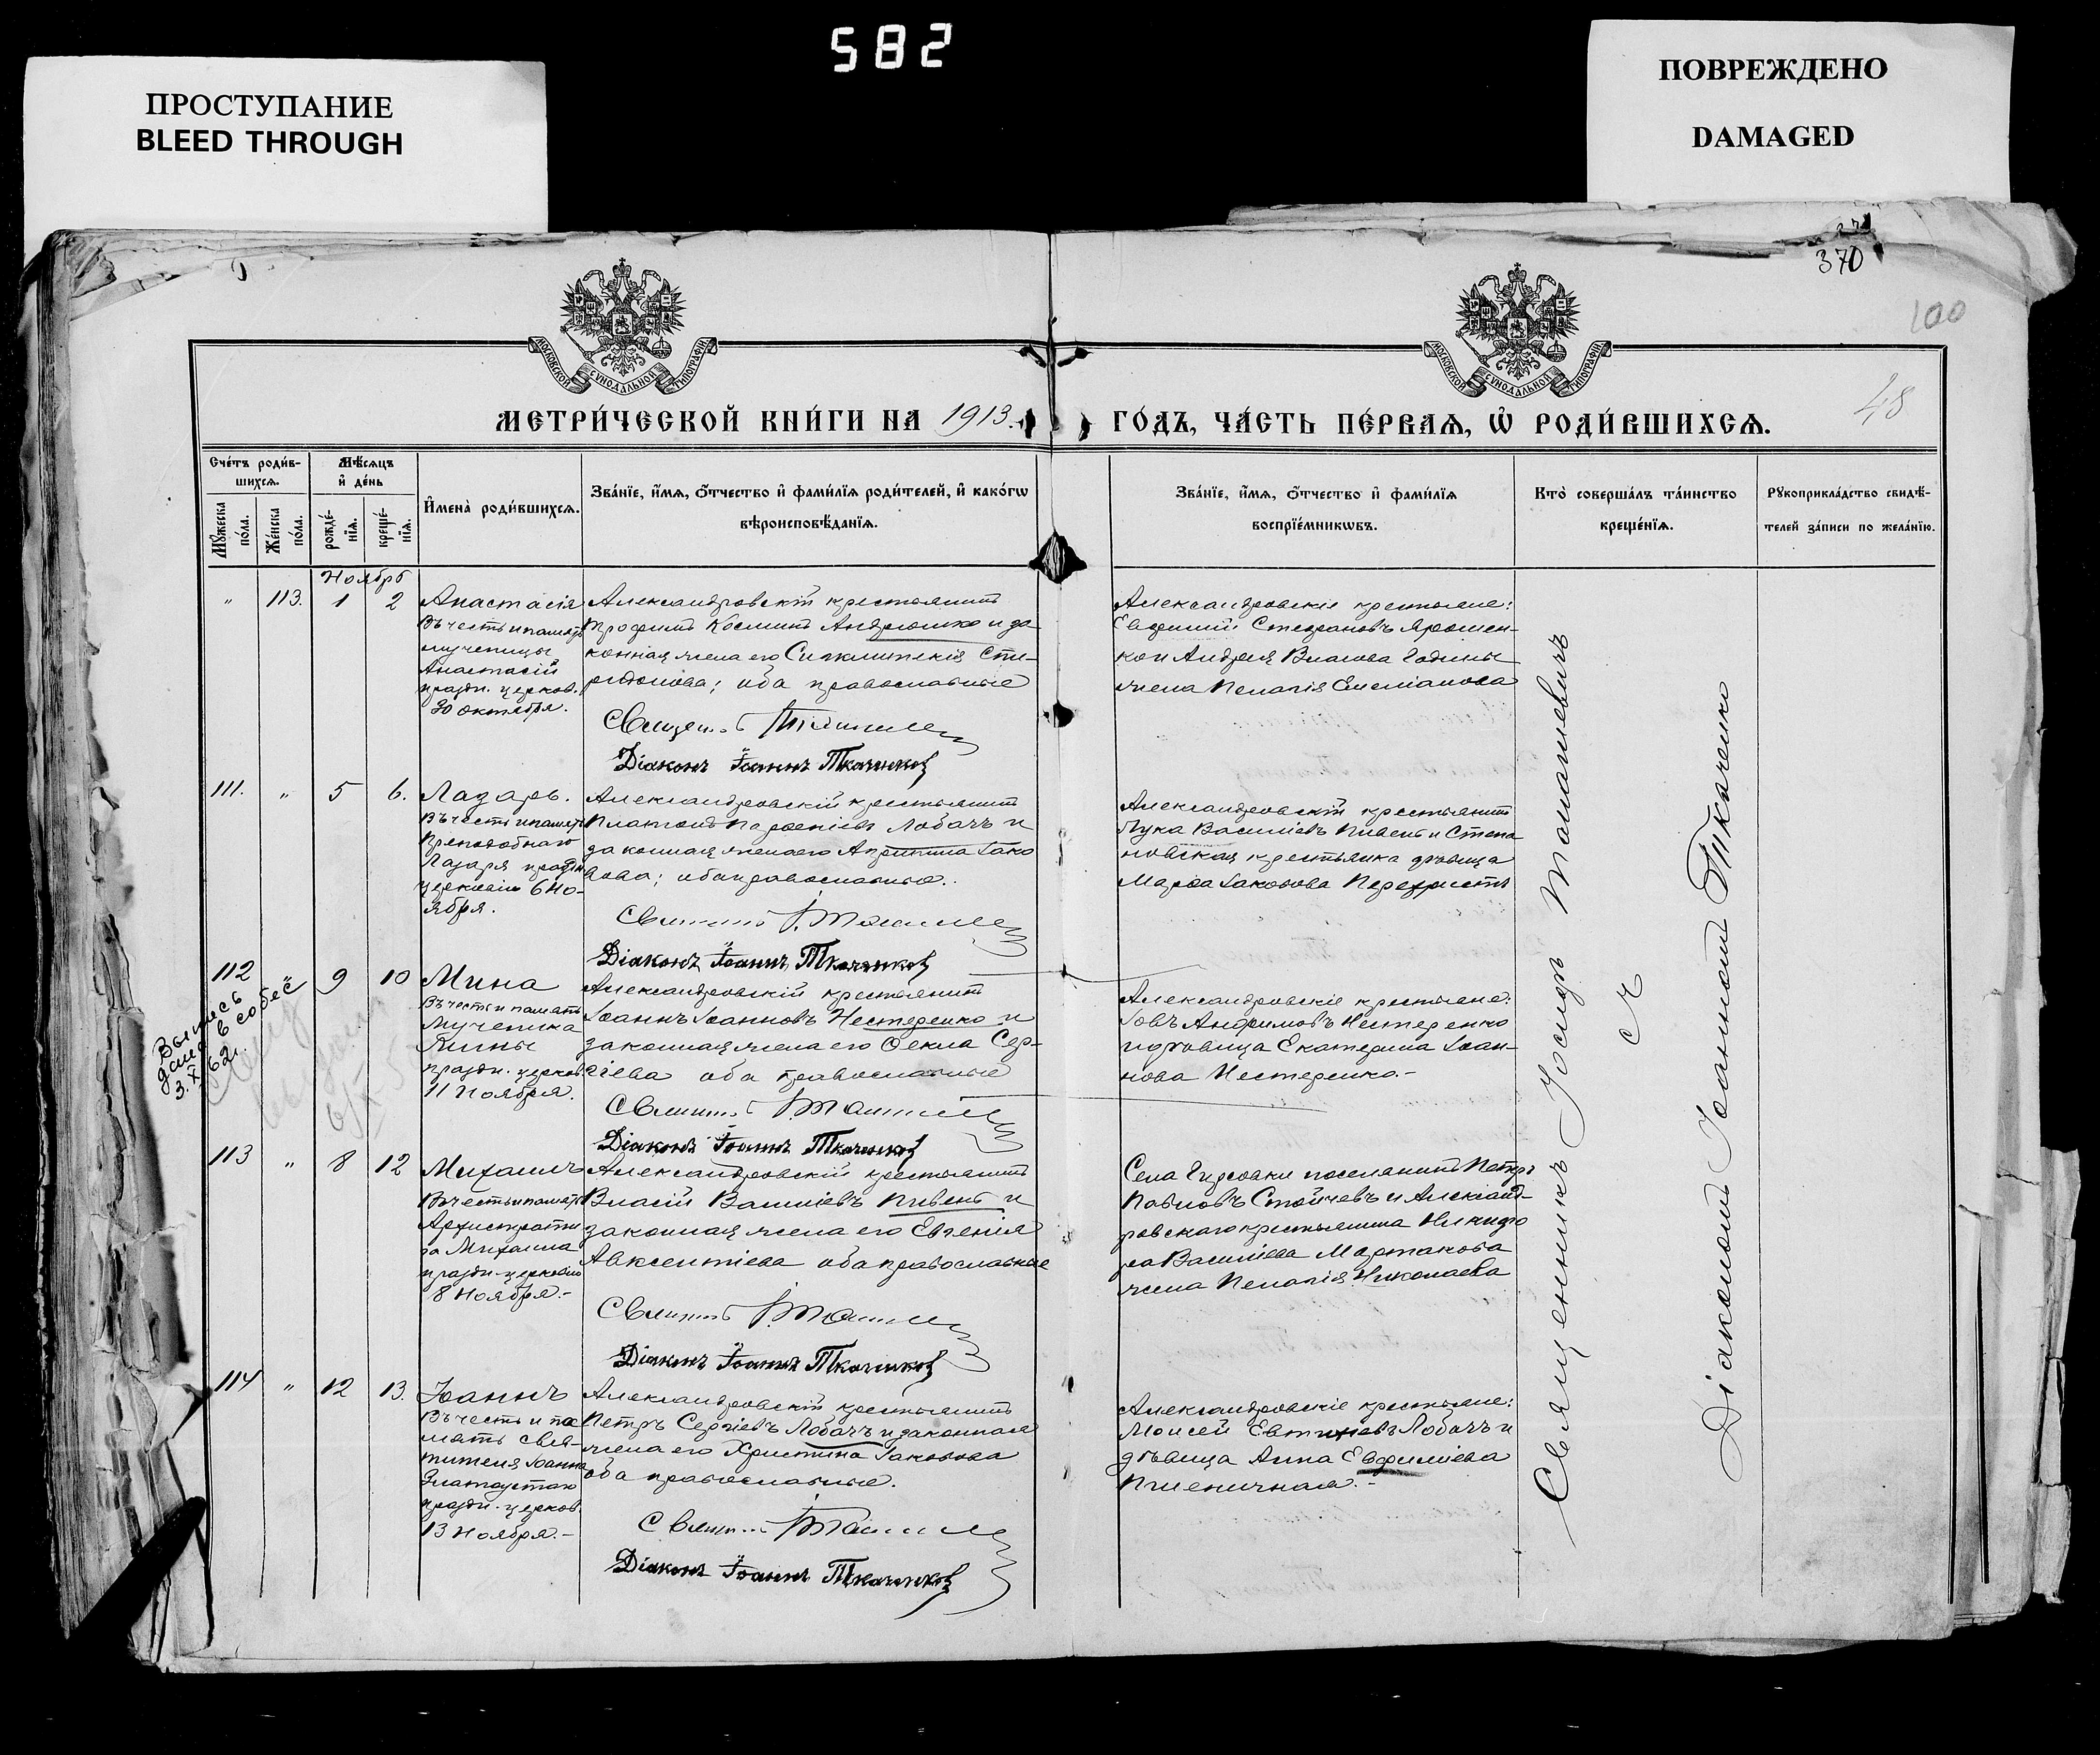 582
ПРОСТУПАНИЕ
BLEED THROUGH
ПОВРЕЖДЕНО
DAMAGED
370
100
48
МОСКОВСКОЙ СѴНОДАЛЬНОЙ ТИПОГРАФІИ
МОСКОВСКОЙ СѴНОДАЛЬНОЙ ТИПОГРАФІИ
МЕТРИ́ЧЕСКОЙ КНИ́ГИ НА 1913
ГО́ДЪ, ЧА́СТЬ ПЕ́РВАѦ, Ѡ҆ РОДИ́ВШИХСѦ.
Сче́тъ роди́в-
шихсѧ.
Мѣ́сѧцъ
и҆ де́нь
Мꙋ́жеска по́ла.
Же́нска по́ла.
рожде́-
нїѧ.
креще́-
нїѧ.
И҆мена̀ роди́вшихсѧ.
Зва́нїе, и҆́мѧ, ѻ҆́тчество и҆ фами́лїѧ роди́телей, и҆ како́гѡ
вѣроисповѣ́данїѧ.
Зва́нїе, и҆́мѧ, ѻ҆́тчество и҆ фами́лїѧ
воспрїе́мникѡвъ.
Кто̀ соверша́лъ та́инство
креще́нїѧ.
Рꙋкоприкла́дство свидѣ́-
телей за́писи по жела́нїю.
Ноябрь
" 113. 1 2
Анастасія
Въ честь и память
мученицы
Анастасіи
праздн. церков.
30 Октября.
Александровскій крестьянинъ
Трофимъ Косминъ Андрюшко и за-
конная жена его Синклитикія Спи-
ридонова; оба православные
Діаконъ Іоаннъ Ткаченковъ
Александровскіе крестьяне:
Евфимій Стефановъ Ярошен-
ко и Андрея Власова Годины
жена Пелагія Емеліанова
111. " 5 6.
Лазарь.
Въ честь и память
Преподобнаго
Лазаря праздн.
церковію 6 Но-
ября.
Александровскій крестьянинъ
Платонъ Парѳеніевъ Лобачъ и
законная жена его Агрипина Іако
вова; оба православные.
Діаконъ Іоаннъ Ткаченковъ
Александровскій крестьянинъ
Лука Василіевъ Пивень и Степа
новская крестьянка дѣвица
Марѳа Іаковова Перехристъ
112 " 9 10
Выпись
дана в собес
3.X.62г.
Мина
Въ честь и память
Мученика
Мины
праздн. церков
11 Ноября.
Александровскій крестьянинъ
Іоаннъ Іоанновъ Нестеренко и
законная жена его Ѳекла Сер-
гіева оба православные
Діаконъ Іоаннъ Ткаченковъ
Александровскіе крестьяне:
Іовъ Анфимовъ Нестеренко
и дѣвица Екатерина Іоан-
нова Нестеренко.-
113 " 8 12
Михаилъ
Въ честь и память
Архистрати
га Михаила
праздн. церковію
8 Ноября.-
Александровскій крестьянинъ
Власій Василіевъ Пивень и
законная жена его Евгенія
Авксентіева оба православные
Діаконъ Іоаннъ Ткаченковъ
Села поселянинъ Петръ
Павловъ Стойчевъ и Александ-
ровскаго крестьянина Никифо
ра Василіева Мартакова
жена Пелагія Николаева
114 " 12 13.
Іоаннъ
Въ честь и па
мять свя-
тителя Іоанна
Златоустаго
праздн. церков.
13 Ноября.-
Александровскій крестьянинъ
Петръ Сергіевъ Лобачъ и законная
жена его Христина Іаковова
оба православные.
Діаконъ Іоаннъ Ткаченковъ
Александровскіе крестьяне:
Моисей Евтихіевъ Лобачъ и
дѣвица Анна Евфиміева
Пшеничная.-
Священникъ Іосифъ Томашевичъ
съ
Діакономъ Іоанномъ Ткаченко